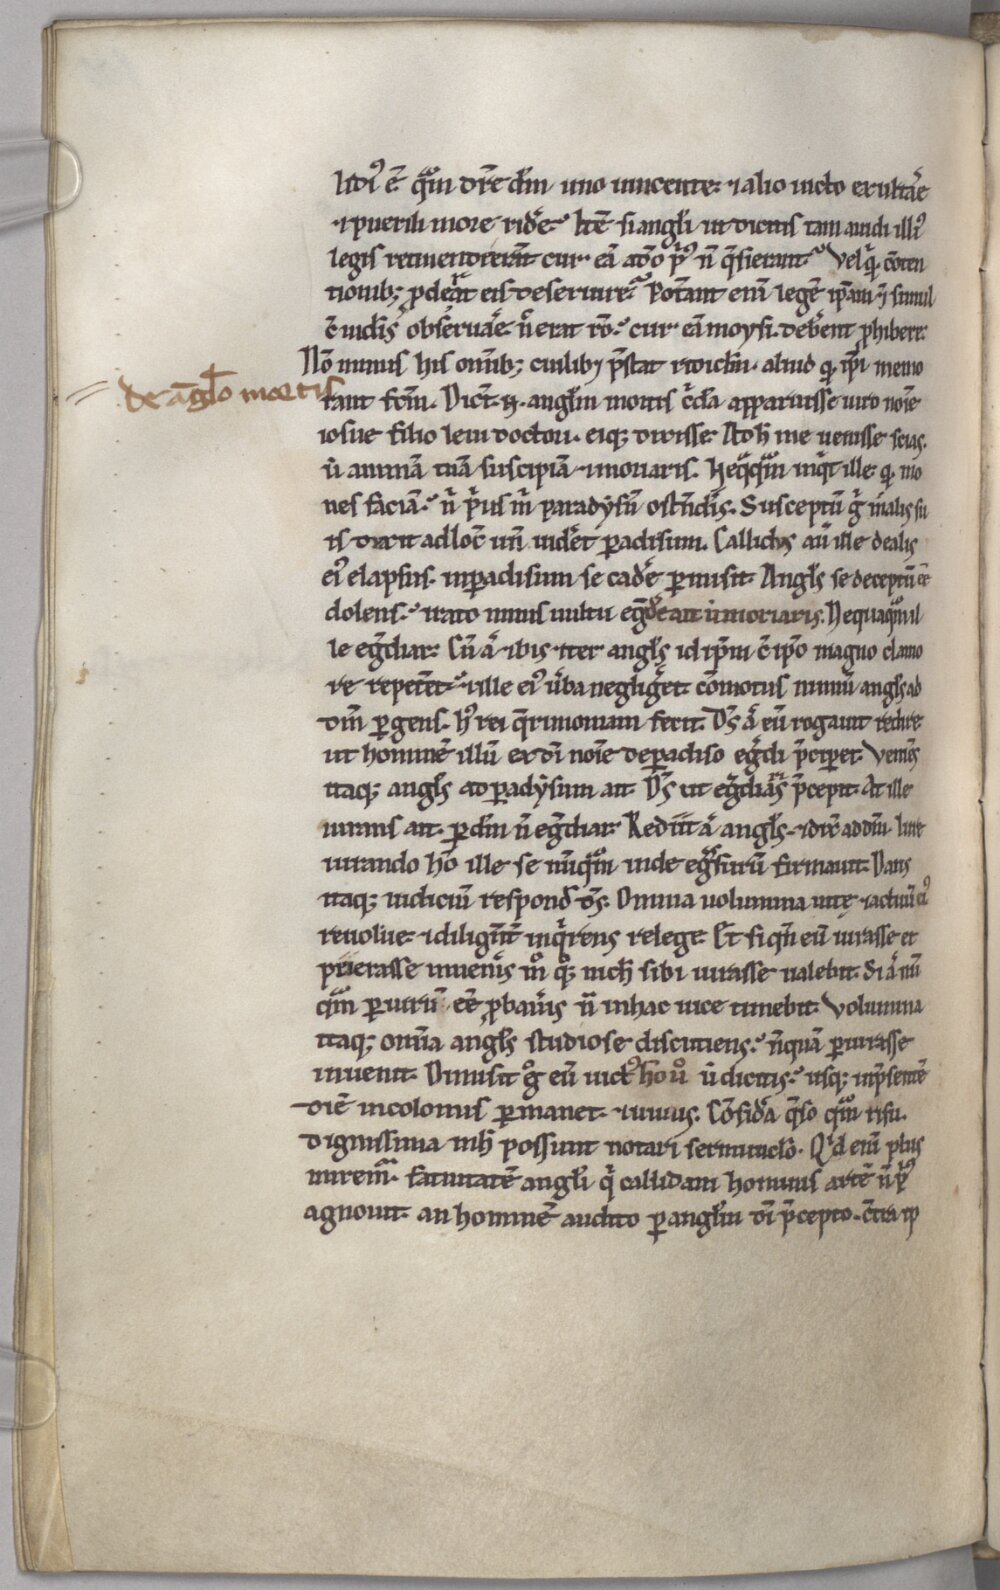 litꝰ ē qm̄ dr̄e dm̄ uno uincente. ⁊ alio uicto exultāe
⁊ puerili more ridēe. Itē si angłi ut dicitis tam auidi illiꝰ
legis retinende erāt cur eā ādō pꝰ n̄ q̄sierant. Vel q̄ cōten
tionibꝫ ꝓdeāt eis deseruire. Poterant enī legē ip̄am ⁊ simul
c̄ iudeis obseruāe. n̄ erat rō. cur eā moysi deberent ꝓhibere.
Nō minus his omībꝫ cuilibꝫ p̄stat ridiclm̄. aliud q̄ ip̄i memo
de āgło mortis
rant fcm̄. Dict̄ .n. anglm̄ mortis c̄dā apparuisse uiro nōīe
iosue filio leui doctori. eiqꝫ dixisse. Ad h̄ me uenisse scias.
ut animā tuā suscipiā ⁊ moriaris. Neq̄q̄m inq̄t ille. q̄ mo
nes faciā. n̄ p̄us m̄ paradysū ostēdis. Susceptū g̊ in alis su
is duxit ad locū un̄ uidēet ꝑadisum. Callidus aū ille de alis
eiꝰ elapsus. in ꝑadisum se cadēe ꝑmisit. Angłs se deceptū ēe
dolens. irato nimis uultu egredē ait ut moriaris. Nequaq̄m il
le egrediar. Cū ā ibis ⁊ ter angłs id ip̄m c̄ ip̄o magno clamo
re repetēet. ⁊ ille eiꝰ uerba negligēet. cōmotus nimiū angłs ad
dm̄ ꝑgens. hꝰ rei q̄rimoniam fecit. Ds̄ ā eū rogauit redire
ut hominē illū ex dī nōīe de ꝑadiso egredi p̄ciperet. Veniēs
itaqꝫ angłs ad ꝑadysum ait. Ds̄ ut egrediaris p̄cepit. At ille
iurans ait. ꝑ dm̄ n̄ egrediar. Rediit ā angłs. ⁊ dix̄ ad dm̄. Iure
iurando hō ille se nūq̄m inde egressurū firmauit. Dans
itaqꝫ iudiciū respond̄ ds̄. Omnia uolumina uite ⁊ actuū eiꝰ
reuolue. ⁊ diligēt inq̄rens relege. Et si q̄n eū iurasse et
peierasse inueneris m̊ qꝫ nich̄ sibi iurasse ualebit. Si ā nū
q̄m ꝑiurū ēe ꝓbaueris n̄ in hac uice timebit. Volumina
itaqꝫ omīa angłs studiose discutiens. nūquā ꝑiurasse
inuenit. Dimisit g̊ eū uict᷒ hou᷒ ut dicitis. usqꝫ in p̄sentē
diē incolomis ꝑmanet. ⁊ uiuus. Cōsidēa q̄so q̄m risu.
dignissima m̄ possunt notari sermunclō. Qd̄ enī plus
mirem̄. fatuitatē angłi q̄ callidam hominis artē n̄ pꝰ
agnouit. an hominē audito ꝑ anglm̄ dī p̄cepto. c̄tra ip